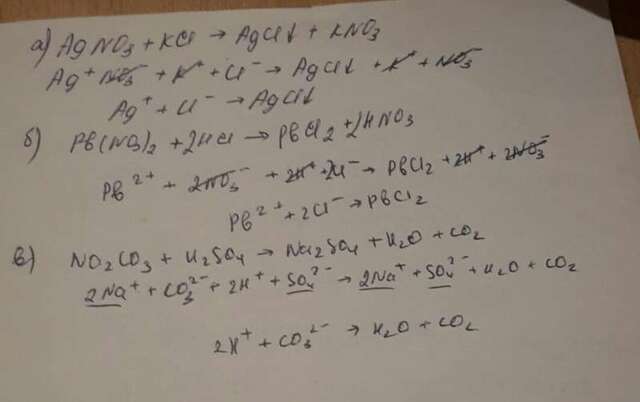 а) AgNO₃ + KCl → AgCl↓ + KNO₃
Ag⁺ NO₃⁻ + K⁺ + Cl⁻ → AgCl↓ + K⁺ + NO₃⁻
Ag⁺ + Cl⁻ → AgCl↓
б) Pb(NO₃)₂ + 2HCl → PbCl₂ + 2HNO₃
Pb²⁺ + 2NO₃⁻ + 2H⁺ + 2Cl⁻ → PbCl₂ + 2H⁺ + 2NO₃⁻
Pb²⁺ + 2Cl⁻ → PbCl₂
в) NO₂CO₃ + H₂SO₄ → Na₂SO₄ + H₂O + CO₂
2Na⁺ + CO₃²⁻ + 2H⁺ + SO₄²⁻ → 2Na⁺ + SO₄²⁻ + H₂O + CO₂
2H⁺ + CO₃²⁻ → H₂O + CO₂